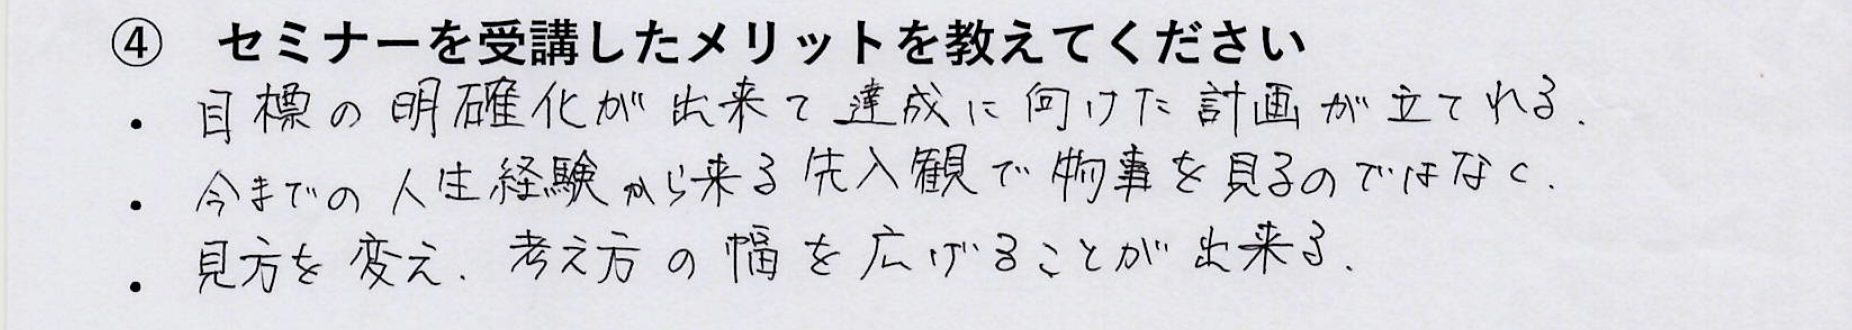 ④ セミナーを受講したメリットを教えてください
・目標の明確化が出来て達成に向けた計画が立てれる.
・今までの人生経験から来る先入観で物事を見るのではなく.
・見方を変え. 考え方の幅を広げることが出来る.